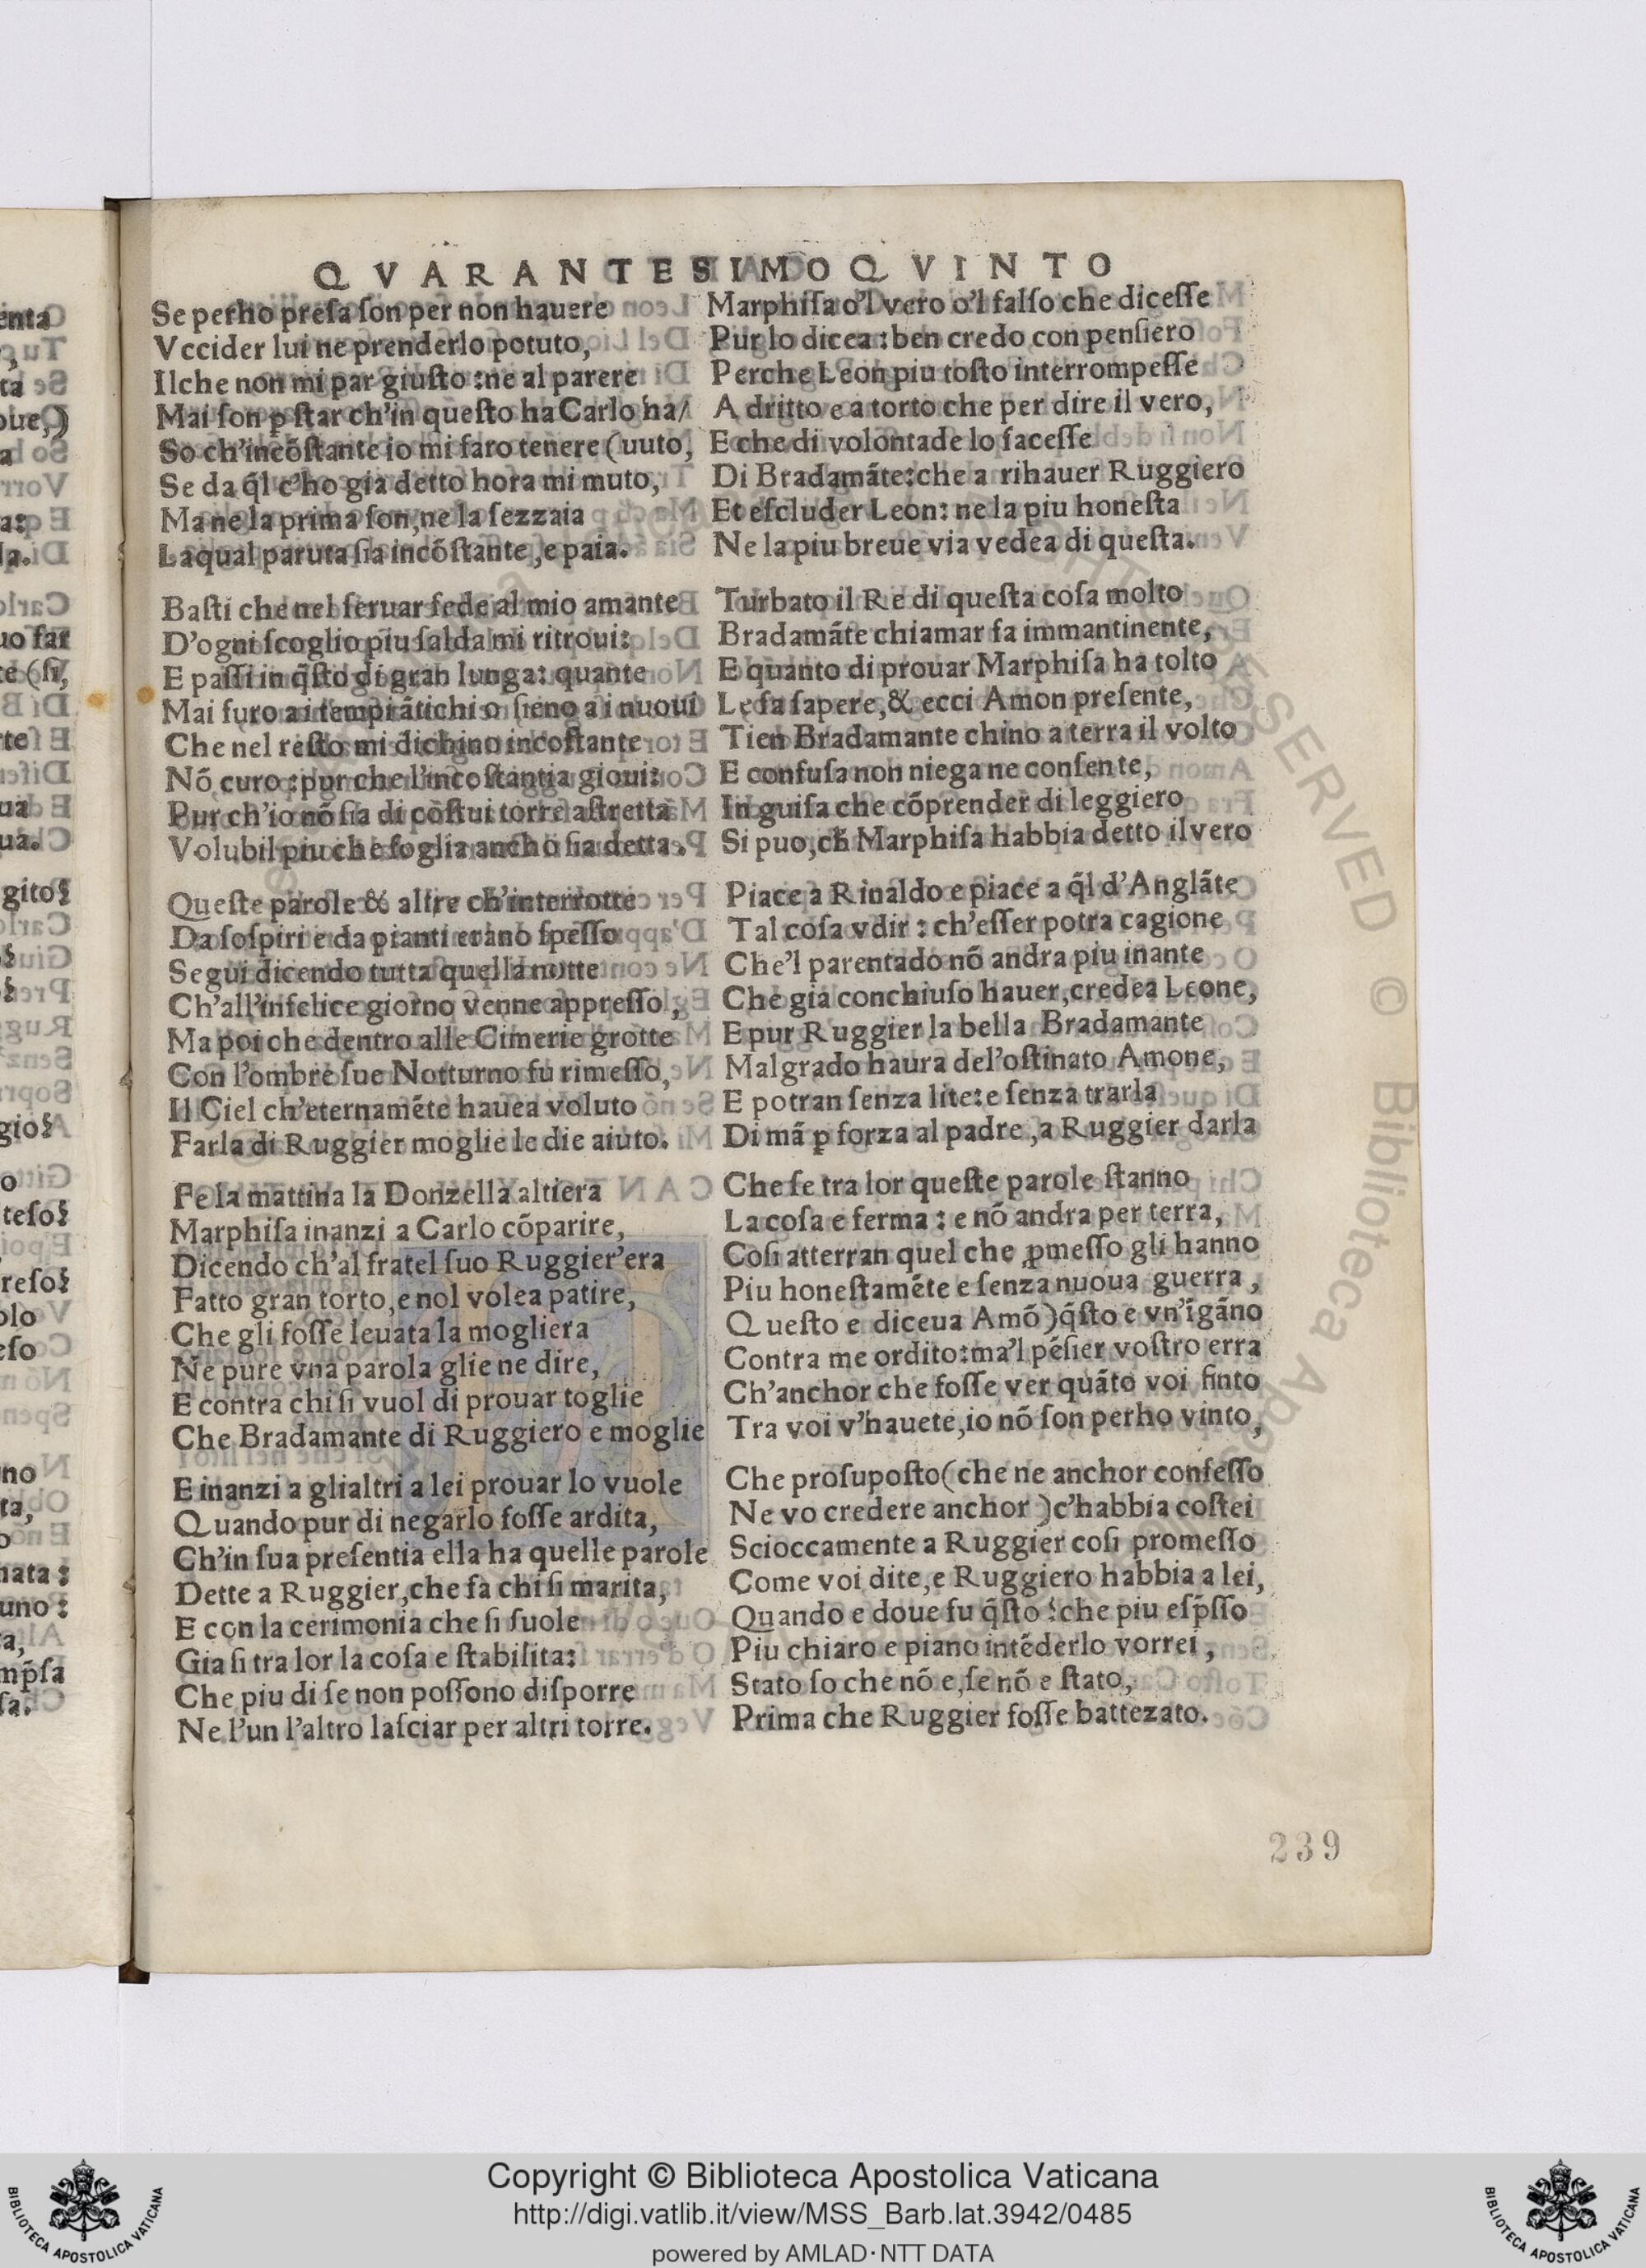 QVARANTESIMOQVINTO
Se perho presa son per non hauere
Vccider lui ne prenderlo potuto,
Ilche non mi par giusto :ne al parere
Mai son ꝑ star ch'in questo ha Carlo ha/
So ch'incõstante io mi faro tenere (uuto,
Se da q̃l c'ho gia detto hora mi muto,
Ma ne la prima son, ne la sezzaia
Laqual paruta sia incõstante, e paia.
Basti che nel seruar fede al mio amante
D'ogni scoglio piu salda mi ritroui:
E passi in q̃sto di gran lunga: quante
Mai furo a i tempi ãtichi o sieno a i nuoui
Che nel resto mi dichino incostante
Nõ curo :pur che l'incostantia gioui:
Pur ch'io nõ sia di costui torre astretta
Volubil piu che foglia ancho sia detta.
Queste parole & altre ch'interrotte
Da sospiri e da pianti erano spesso
Segui dicendo tutta quella notte
Ch'all'infelice giorno venne appresso,
Ma poi che dentro alle Cimerie grotte
Con l'ombre sue Notturno fu rimesso,
Il Ciel ch'eternamẽte hauea voluto
Farla di Ruggier moglie le die aiuto.
Fe la mattina la Donzella altiera
Marphisa inanzi a Carlo cõparire,
Dicendo ch'al fratel suo Ruggier'era
Fatto gran torto, e nol volea patire,
Che gli fosse leuata la mogliera
Ne pure vna parola glie ne dire,
E contra chi si vuol di prouar toglie
Che Bradamante di Ruggiero e moglie
E inanzi a glialtri a lei prouar lo vuole
Quando pur di negarlo fosse ardita,
Ch'in sua presentia ella ha quelle parole
Dette a Ruggier, che fa chi si marita,
E con la cerimonia che si suole
Gia si tra lor la cosa e stabilita:
Che piu di se non possono disporre
Ne l'un l'altro lasciar per altri torre.
Marphisa o'l vero o'l falso che dicesse
Pur lo dicea :ben credo con pensiero
Perche Leon piu tosto interrompesse
A dritto e a torto che per dire il vero,
E che di volontade lo facesse
Di Bradamãte: che a rihauer Ruggiero
Et escluder Leon: ne la piu honesta
Ne la piu breue via vedea di questa.
Turbato il Re di questa cosa molto
Bradamãte chiamar fa immantinente,
E quanto di prouar Marphisa ha tolto
Le fa sapere, & ecci Amon presente,
Tien Bradamante chino a terra il volto
E confusa non niega ne consente,
In guisa che cõprender di leggiero
Si puo, cħ Marphisa habbia detto il vero
Piace a Rinaldo e piace a q̃l d'Anglãte
Tal cosa vdir : ch'esser potra cagione
Che'l parentado nõ andra piu inante
Che gia conchiuso hauer, credea Leone,
E pur Ruggier la bella Bradamante
Malgrado haura del'ostinato Amone,
E potran senza lite: e senza trarla
Di mã ꝑ forza al padre, a Ruggier darla
Che se tra lor queste parole stanno
La cosa e ferma : e nõ andra per terra,
Cosi atterran quel che ꝓmesso gli hanno
Piu honestamẽte e senza nuoua guerra,
Questo e diceua Amõ) q̃sto e vn'ĩgãno
Contra me ordito: ma'l pẽsier vostro erra
Ch'anchor che fosse ver quãto voi finto
Tra voi v'hauete, io nõ son perho vinto,
Che prosuposto (che ne anchor confesso
Ne vo credere anchor ) c'habbia costei
Scioccamente a Ruggier cosi promesso
Come voi dite, e Ruggiero habbia a lei,
Quando e doue fu q̃sto ? che piu esp̃sso
Piu chiaro e piano intẽderlo vorrei,
Stato so che nõ e, se nõ e stato,
Prima che Ruggier fosse battezato.
239
Copyright © Biblioteca Apostolica Vaticana
http://digi.vatlib.it/view/MSS_Barb.lat.3942/0485
powered by AMLAD·NTT DATA
BIBLIOTECA APOSTOLICA VATICANA
BIBLIOTECA APOSTOLICA VATICANA